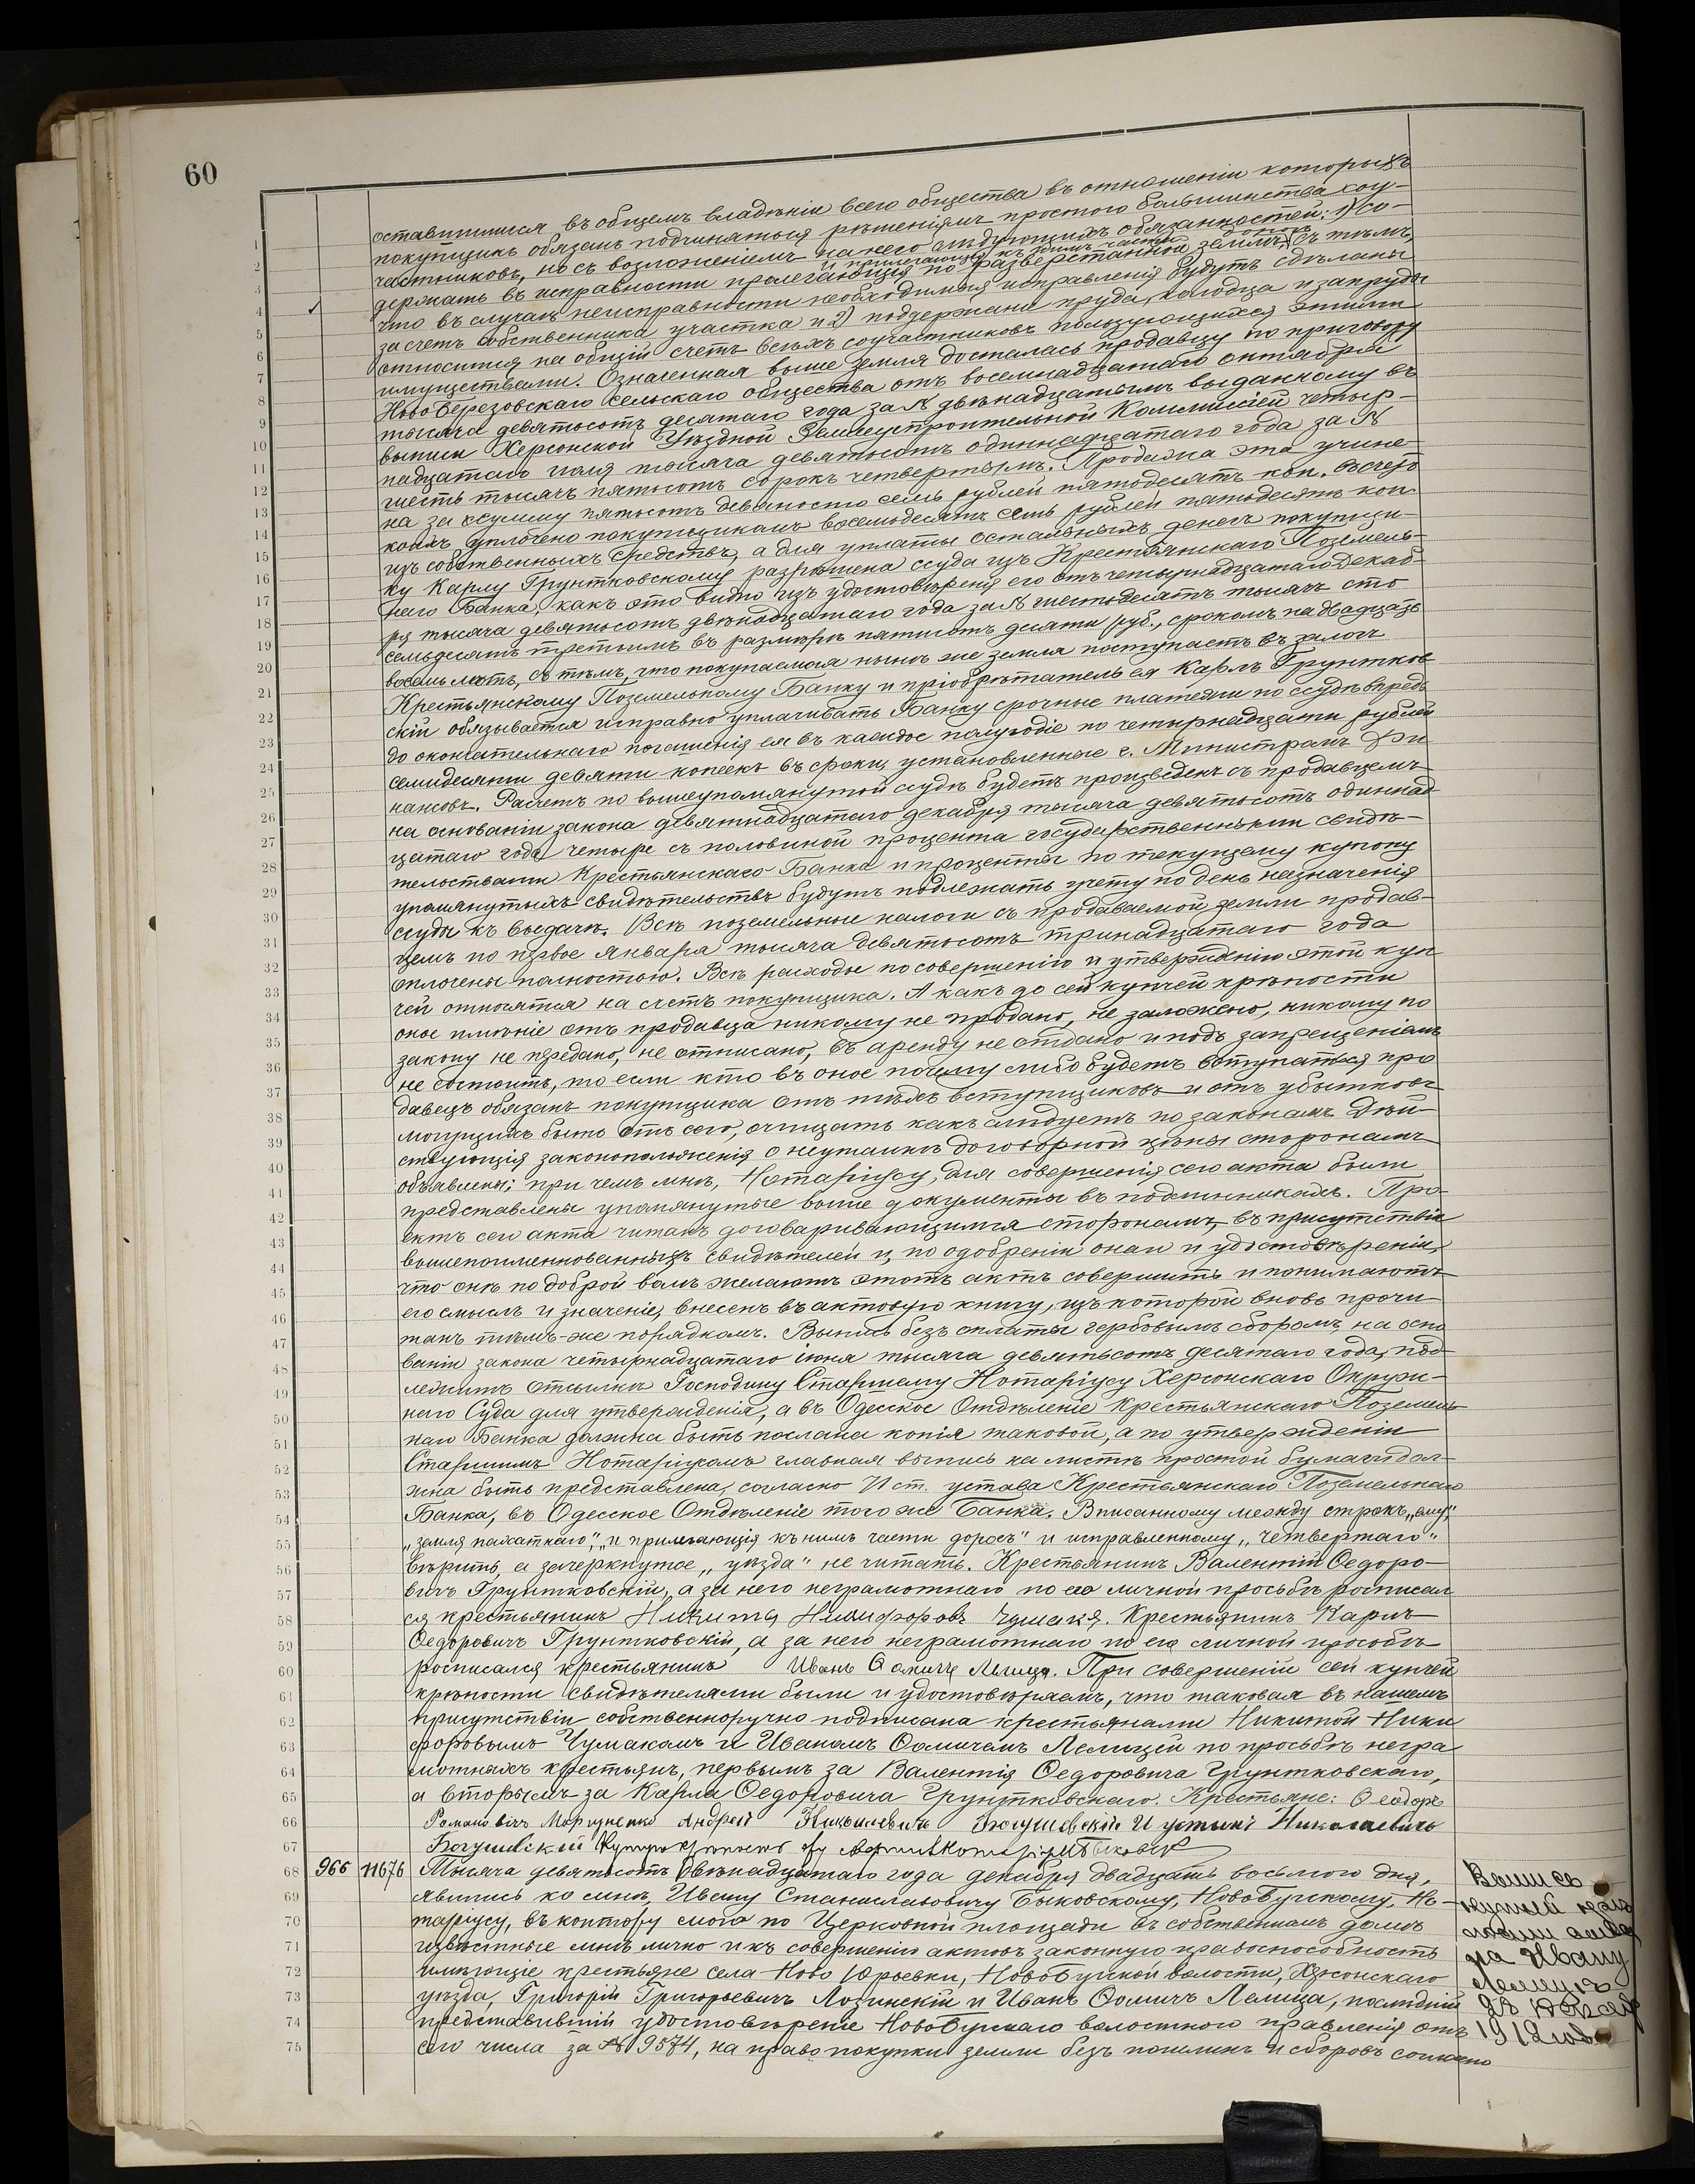 60
оставшимися въ общемъ владѣніи всего общества въ отношеніи которыхъ
покупщикъ обязанъ подчиняться рѣшеніямъ простого большинства соу-
частниковъ, но съ возложеніемъ на него слѣдующихъ обязанностей: 1) со-
и прилегающія къ нимъ части дорогъ
держать въ исправности пролегающія по разверстанной землѣ, съ тѣмъ,
что въ случаѣ неисправности необходимыя исправленія будутъ сдѣланы
за счетъ собственника участка и 2) поддержаніе пруда, колодца и запруды
относится на общій счетъ всѣхъ соучастниковъ пользующихся этими
имуществами. Означенная выше земля досталась продавцу по приговору
Ново Березовскаго сельскаго общества отъ восемнадцатаго октября
тысяча девятьсотъ десятаго года за № двѣнадцатымъ выданному въ
выписи Херсонской Уѣздной Землеустроительной Коммиссіей четыр-
надцатаго іюля тысяча девятьсотъ одиннадцатаго года за №
шесть тысячъ пятьсотъ сорокъ четвертымъ. Продажа эта учине-
на за сумму пятьсотъ девяносто семь рублей пятьдесятъ коп. въ счетъ
коихъ уплочено покупщикомъ восемьдесятъ семь рублей пятьдесятъ коп.
изъ собственныхъ средствъ, а для уплаты остальныхъ денегъ покупщи-
ку Карлу Грунтковскому разрѣшена ссуда изъ Крестьянскаго Поземель-
наго Банка, какъ это видно изъ удостовѣренія его отъ четырнадцатаго декаб-
ря тысяча девятьсотъ двѣнадцатаго года за № шестьдесятъ тысячъ сто
семьдесятъ третьимъ въ размѣрѣ пятисотъ десяти руб., срокомъ на двадцать
восемь лѣтъ, съ тѣмъ, что покупаемая нынѣ же земля поступаетъ въ залогъ
Крестьянскому Поземельному Банку и пріобрѣтатель ея Карлъ Грунтков-
скій обязывается исправно уплачивать Банку срочные платежи по ссудѣ впредь
до окончательнаго погашенія ея въ каждое полугодіе по четырнадцати рублей
семидесяти девяти копеекъ въ сроки, установленные г. Министромъ Фи-
нансовъ. Расчетъ по вышеупомянутой ссудѣ будетъ произведенъ съ продавцемъ
на основаніи закона девятнадцатаго декабря тысяча девятьсотъ одиннад-
цатаго года четыре съ половиной процента государственными свидѣ-
тельствами Крестьянскаго Банка и проценты по текущему купону
упомянутыхъ свидѣтельствъ будутъ подлежать учету по день назначенія
ссуды къ выдачѣ. Всѣ поземельные налоги съ продаваемой земли продав-
цемъ по первое января тысяча девятьсотъ тринадцатаго года
оплочены полностью. Всѣ расходы по совершенію и утвержденію этой куп-
чей относятся на счетъ покупщика. А какъ до сей купчей крѣпости
оное имѣніе отъ продавца никому не продано, не заложено, никому по
закону не передано, не отписано, въ аренду не отдано и подъ запрещеніемъ
не состоитъ, то если кто въ оное почему либо будетъ вступаться про-
давецъ обязанъ покупщика отъ тѣхъ вступщиковъ и отъ убытковъ
могущихъ быть отъ сего, очищать какъ слѣдуетъ по законамъ. Дѣй-
ствующія законоположенія о неутайкѣ договорной цѣны сторонамъ
объявлены; при чемъ мнѣ, Нотаріусу, для совершенія сего акта были
представлены упомянутые выше документы въ подлинникахъ. Про-
ектъ сего акта читанъ договаривающимся сторонамъ, въ присутствіи
вышепоименнованныхъ свидѣтелей и, по одобреніи онаго и удостовѣреніи,
что онѣ по доброй волѣ желаютъ этотъ актъ совершить и понимаютъ
его смыслъ и значеніе, внесенъ въ актовую книгу, изъ которой вновь прочи-
танъ тѣмъ-же порядкомъ. Выпись безъ оплаты гербовымъ сборомъ, на осно-
ваніи закона четырнадцатаго іюня тысяча девятьсотъ десятаго года, под-
лежитъ отсылкѣ Господину Старшему Нотаріусу Херсонскаго Окруж-
наго Суда для утвержденія, а въ Одесское Отдѣленіе Крестьянскаго Поземель-
наго Банка должна быть послана копія таковой, а по утвержденіи
Старшимъ Нотаріусомъ главная выпись на листѣ простой бумаги дол-
жна быть представлена, согласно ст. устава Крестьянскаго Поземельнаго
Банка, въ Одесское Отдѣленіе того же Банка. Вписанному между строкъ „ему“,
„земля пахатнаго“, „и прилегающія къ нимъ части дорогъ“ и исправленному „четвертаго“
вѣрить, а зачеркнутое „уѣзда“ не читать. Крестьянинъ Валентій Ѳедоро-
вичъ Грунтковскій, а за него неграмотнаго по его личной просьбѣ росписал-
ся крестьянинъ Никита Никифоровъ Чумакъ. Крестьянинъ Карлъ
Ѳедоровичъ Грунтковскій, а за него неграмотнаго по его личной просьбѣ
росписался крестьянинъ Иванъ Ѳомичъ Лемица. При совершеніи сей купчей
крѣпости свидѣтелями были и удостовѣряемъ, что таковая въ нашемъ
присутствіи собственноручно подписана крестьянами Никитой Ники-
форовымъ Чумакомъ и Иваномъ Ѳомичемъ Лемицей по просьбѣ негра-
мотныхъ крестьянъ, первымъ за Валентія Ѳедоровича Грунтковскаго,
а вторымъ за Карла Ѳедоровича Грунтковскаго. Крестьяне: Ѳеодоръ
Романовичъ Андрей Николаевичъ Богушевскій Устинъ Николаевичъ
Богушевскій
966 11676 Тысяча девятьсотъ двѣнадцатаго года декабря двадцать восьмого дня,
явились ко мнѣ, Ивану Станиславовичу Быковскому, НовоБугскому, Но-
таріусу, въ контору мою по Церковной площади въ собственномъ домѣ
извѣстные мнѣ лично и къ совершенію актовъ законную правоспособность
имѣющіе крестьяне села Ново Юрьевки, НовоБугской волости, Херсонскаго
уѣзда, Григорій Григорьевичъ Лозинскій и Иванъ Ѳомичъ Лемица, послѣдній
представившій удостовѣреніе НовоБугскаго волостного правленія отъ
сего числа за № 9574, на право покупки земли безъ пошлинъ и сборовъ согласно
Выпись
купчей
на Ивану
Лемицѣ
28 декаб
1912 года
1
2
3
4
5
6
7
8
9
10
11
12
13
14
15
16
17
18
19
20
21
22
23
24
25
26
27
28
29
30
31
32
33
34
35
36
37
38
39
40
41
42
43
44
45
46
47
48
49
50
51
52
53
54
55
56
57
58
59
60
61
62
63
64
65
66
67
68
69
70
71
72
73
74
75